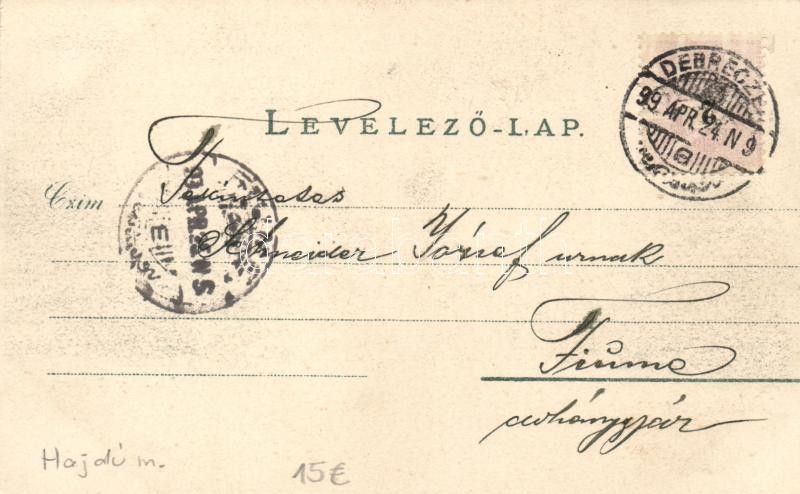 LEVELEZŐ-LAP.
DEBRECZEN
99. APR. 24. N 9
Czim
Tekintetes
Schneider József urnak
Fiume
dohánygyár
Hajdú m.
15€